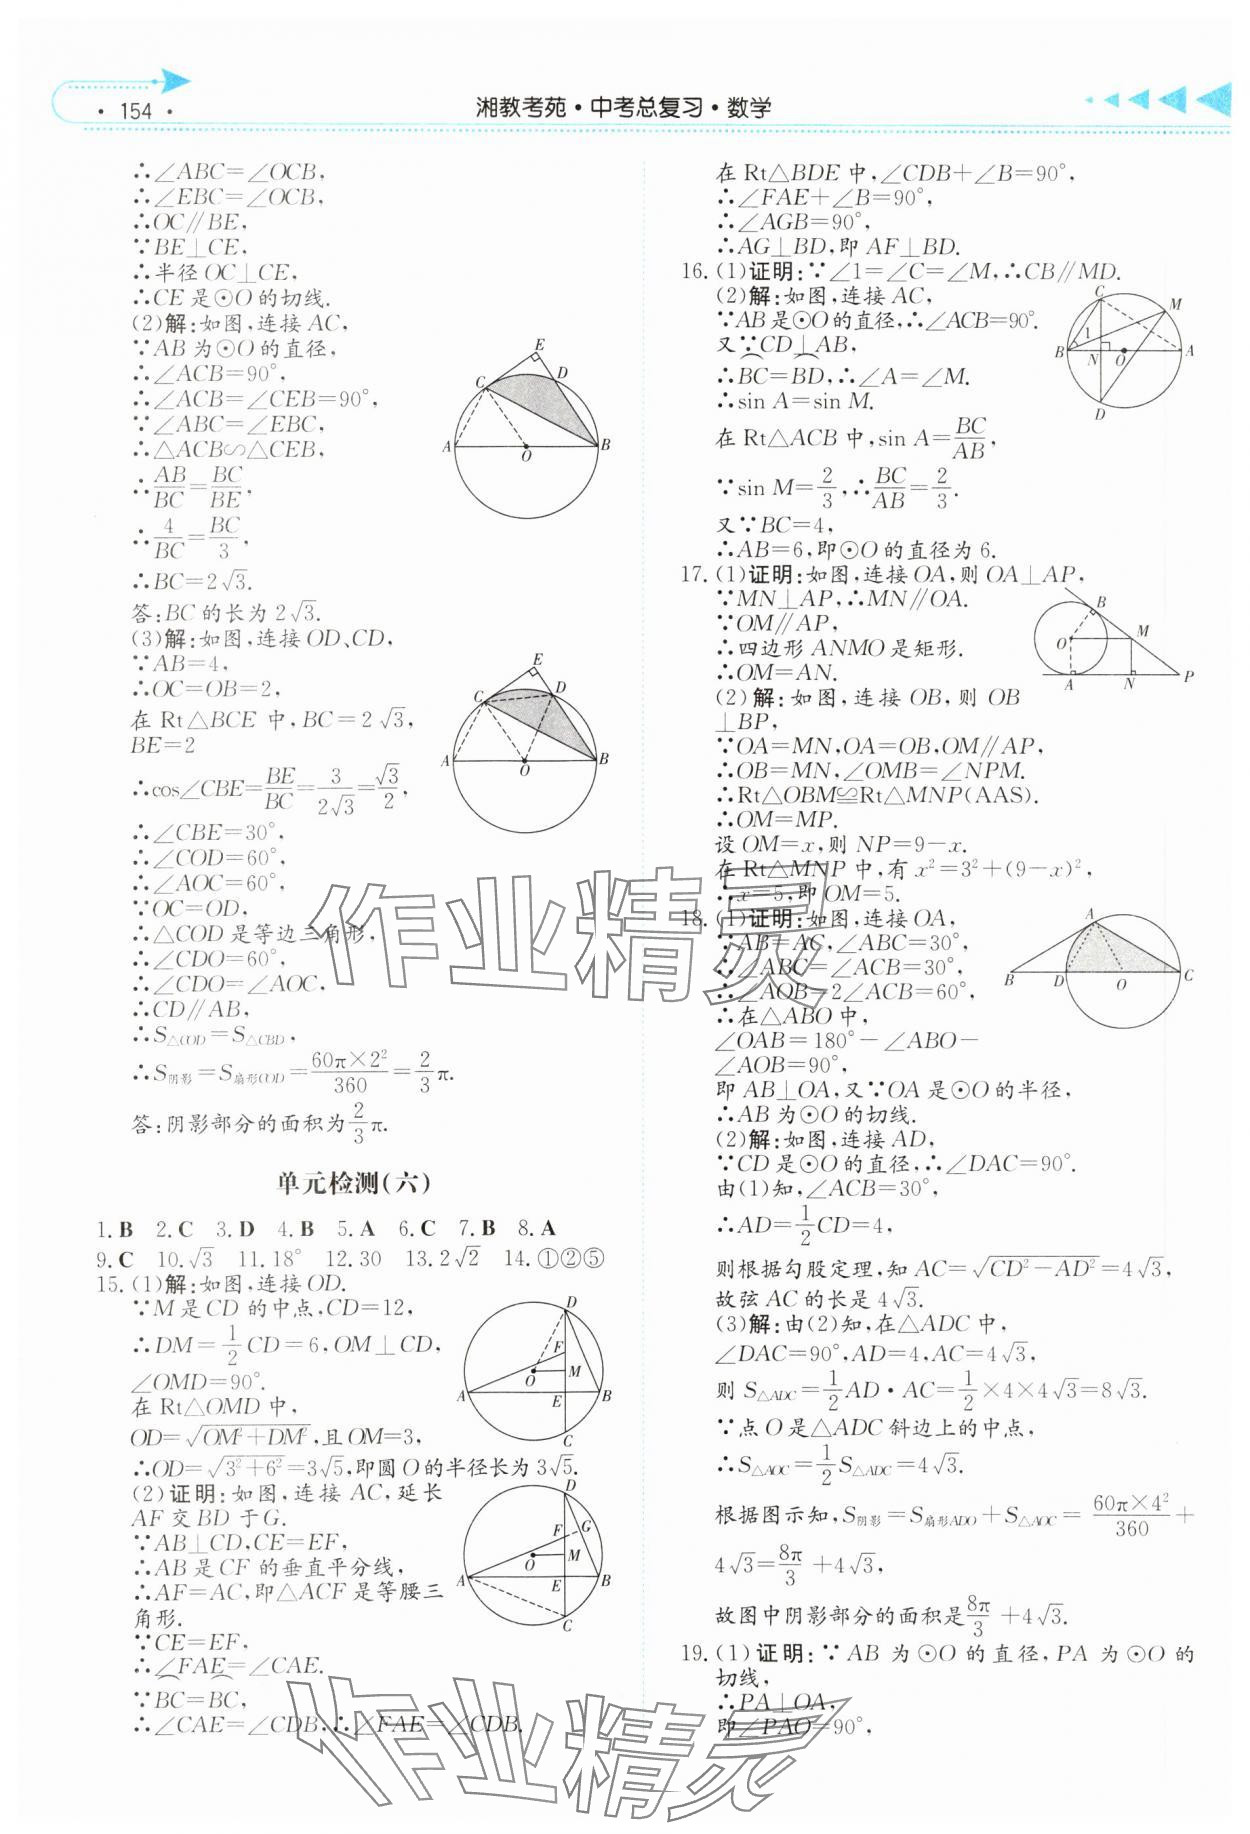 · 154 ·
湘教考苑·中考总复习·数学
∴∠ABC=∠OCB,
∴∠EBC=∠OCB,
∴OC∥BE,
∵BE⊥CE,
∴半径OC⊥CE,
∴CE是⊙O的切线.
(2)解:如图,连接AC,
∵AB为⊙O的直径,
∴∠ACB=90°,
∴∠ACB=∠CEB=90°,
∵∠ABC=∠EBC,
∴△ACB∽△CEB,
∴AB/BC=BC/BE,
∴4/BC=BC/3,
∴BC=2√3.
答:BC的长为2√3.
(3)解:如图,连接OD、CD,
∵AB=4,
∴OC=OB=2,
在Rt△BCE中,BC=2√3,
BE=2
∴cos∠CBE=BE/BC=3/2√3=√3/2,
∴∠CBE=30°,
∴∠COD=60°,
∴∠AOC=60°,
∵OC=OD,
∴△COD是等边三角形,
∴∠CDO=60°,
∴∠CDO=∠AOC,
∴CD∥AB,
∴S△COD=S△CBD,
∴S阴影=S扇形COD=60π×2²/360=2/3π.
答:阴影部分的面积为2/3π.
单元检测(六)
1.B 2.C 3.D 4.B 5.A 6.C 7.B 8.A
9.C 10.√3 11.18° 12.30 13.2√2 14.①②⑤
15.(1)解:如图,连接OD.
∵M是CD的中点,CD=12,
∴DM=1/2CD=6,OM⊥CD,
∠OMD=90°.
在Rt△OMD中,
OD=√(OM²+DM²),且OM=3,
∴OD=√(3²+6²)=3√5,即圆O的半径长为3√5.
(2)证明:如图,连接AC,延长
AF交BD于G.
∵AB⊥CD,CE=EF,
∴AB是CF的垂直平分线,
∴AF=AC,即△ACF是等腰三
角形.
∵CE=EF,
∴∠FAE=∠CAE.
∵⌒BC=⌒BC,
∴∠CAE=∠CDB,∴∠FAE=∠CDB.
在Rt△BDE中,∠CDB+∠B=90°,
∴∠FAE+∠B=90°,
∴∠AGB=90°,
∴AG⊥BD,即AF⊥BD.
16.(1)证明:∵∠1=∠C=∠M,∴CB∥MD.
(2)解:如图,连接AC,
∵AB是⊙O的直径,∴∠ACB=90°.
又∵CD⊥AB,
∴⌒BC=⌒BD,∴∠A=∠M.
∴sin A=sin M.
在Rt△ACB中,sin A=BC/AB,
∵sin M=2/3,∴BC/AB=2/3.
又∵BC=4,
∴AB=6,即⊙O的直径为6.
17.(1)证明:如图,连接OA,则OA⊥AP,
∵MN⊥AP,∴MN∥OA.
∵OM∥AP,
∴四边形ANMO是矩形.
∴OM=AN.
(2)解:如图,连接OB,则OB
⊥BP,
∵OA=MN,OA=OB,OM∥AP,
∴OB=MN,∠OMB=∠NPM.
∴Rt△OBM≌Rt△MNP(AAS).
∴OM=MP.
设OM=x,则NP=9-x.
在Rt△MNP中,有x²=3²+(9-x)²,
∴x=5,即OM=5.
18.(1)证明:如图,连接OA,
∵AB=AC,∠ABC=30°,
∴∠ABC=∠ACB=30°,
∴∠AOB=2∠ACB=60°,
∴在△ABO中,
∠OAB=180°-∠ABO-
∠AOB=90°,
即AB⊥OA,又∵OA是⊙O的半径,
∴AB为⊙O的切线.
(2)解:如图,连接AD,
∵CD是⊙O的直径,∴∠DAC=90°.
由(1)知,∠ACB=30°,
∴AD=1/2CD=4,
则根据勾股定理,知AC=√(CD²-AD²)=4√3,
故弦AC的长是4√3.
(3)解:由(2)知,在△ADC中,
∠DAC=90°,AD=4,AC=4√3,
则S△ADC=1/2AD·AC=1/2×4×4√3=8√3.
∵点O是△ADC斜边上的中点,
∴S△AOC=1/2S△ADC=4√3.
根据图示知,S阴影=S扇形ADO+S△AOC=60π×4²/360+
4√3=8π/3+4√3,
故图中阴影部分的面积是8π/3+4√3.
19.(1)证明:∵AB为⊙O的直径,PA为⊙O的
切线,
∴PA⊥OA,
即∠PAO=90°,
作业精灵
作业精灵